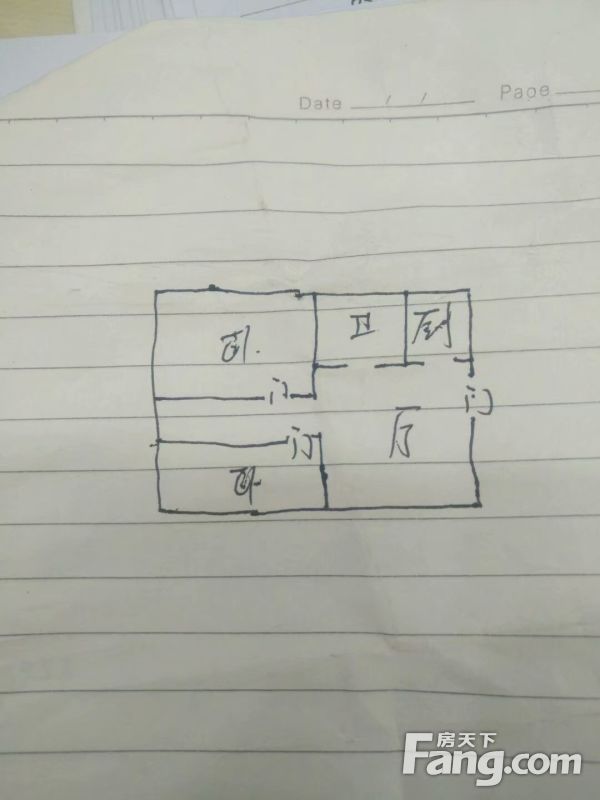 Date / / Page
卧 卫 厨
门 门
厅
门
卧
房天下
Fang.com